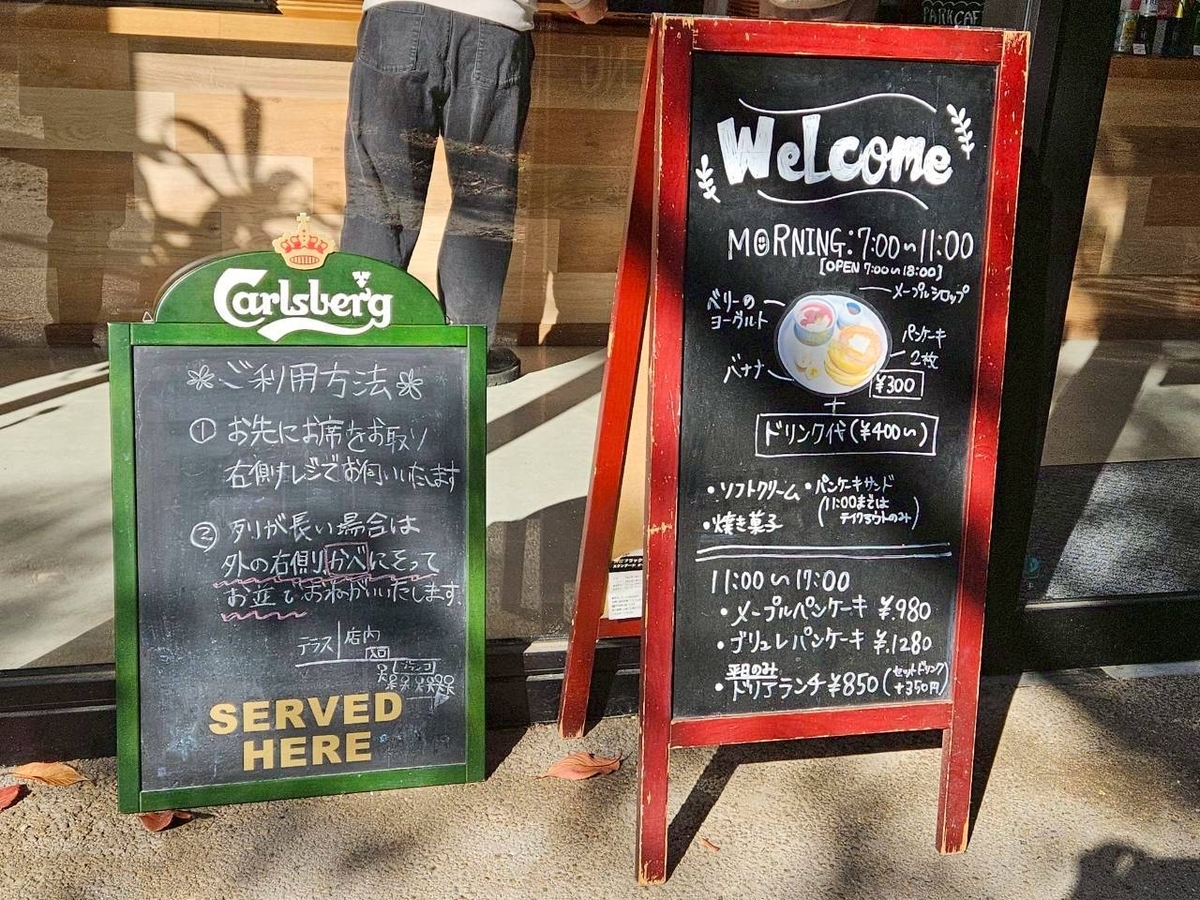 PARKCAF
Carlsberg
ご利用方法
① お先にお席をお取り
右側レジでお伺いいたします
② 列が長い場合は
外の右側かべにそって
お並びおねがいいたします。
テラス 店内
入口
SERVED
HERE
Welcome
MORNING:7:00～11:00
[OPEN 7:00～18:00]
メープルシロップ
ベリーの
ヨーグルト
パンケーキ
2枚
バナナ
¥300
+
ドリンク代(¥400～)
・ソフトクリーム ・パンケーキサンド
(11:00までは
テイクアウトのみ)
・焼き菓子
11:00～17:00
・メープルパンケーキ ¥.980
・ブリュレパンケーキ ¥.1280
平日のみ
・ドリアランチ ¥850 (セットドリンク
+350円)